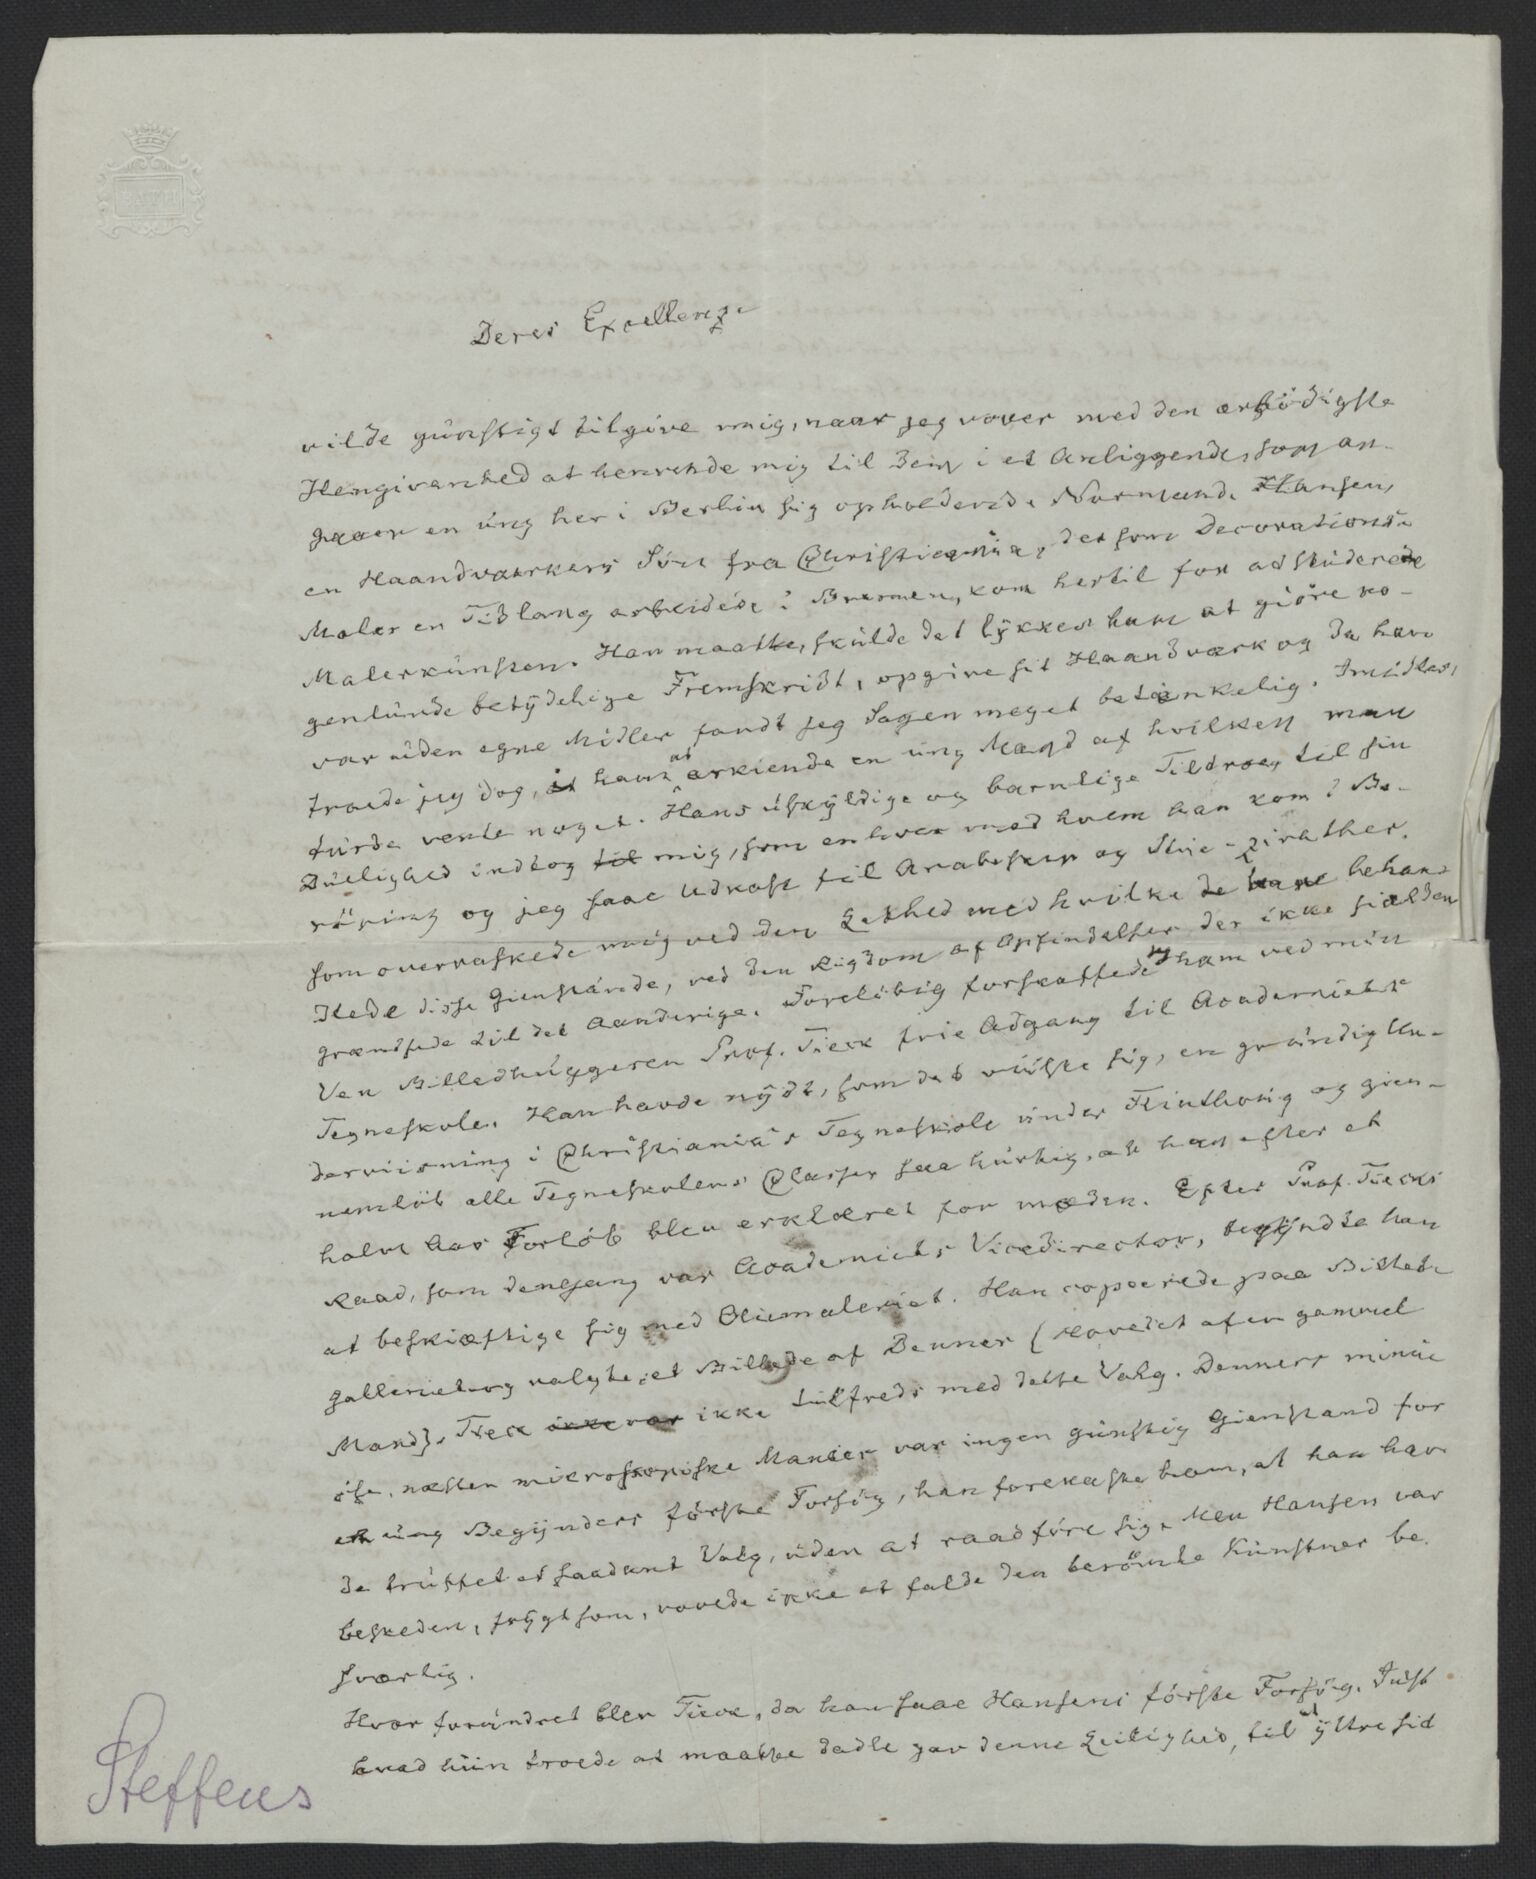 BATH
Deres Excellenze
vilde günstigt tilgive mig, naar jeg vover med den ærbödigste
Hengivenhed at henvende mig til Dem i et Anliggende, som an-
gaaer en üng her i Berlin sig opholdende Normand. Hansen,
en Haandværkers Sön fra Christiania, der som Decorations-
Maler en Tidlang arbeidede i Bremen, kom hertil for at stüdere
Malerkünsten. Han maatte, skülde det lÿkkes ham at giöre no-
genlünde betÿdelige Fremskridt, opgive sit Haandværk og da han
var üden egne Midler fandt jeg Sagen meget betænkelig. Imidler,
troede jeg dog, i ham at erkiende en üng Mand af hvilken man
türde vente noget. Hans üskÿldige og barnlige Tildroe, til sin
Düelighed indtog til mig, som enhver med hvem han kom i Be-
röring og jeg saae Udkast til Arabesker og Stüe-zirather,
som overraskede mig ved den Lethed med hvilke de behan-
dlede disse Gienstände, ved den Rigdom af Opfindelser der ikke sielden
grændsede til det Aanderige. Forelöbig forskaffede jeg ham ved min
Ven Billedhüggeren Prof. Tieck frie Adgang til Academiets
Tegneskole. Han havde nÿdt, som det viiste sig, en gründig Un-
derviisning i Christiania's Tegneskole ünder Flinthoug og gien-
nemlöb alle Tegneskolens Classer saa hürtig, at han efter et
halvt Aars Forlöb blev erklæret for moden. Efter Prof. Tiecks
Raad, som dengang var Academiets Vicedirector, begÿndte han
at beskieftige sig med Oliemaleriet. Han copeerede paa Billede
galleriet og valgte et Billede af Denner (Hovedet af en gammel
Mand). Tieck ikke var ikke tilfreds med dette Valg. Denners minüi
öse, næsten mikroskopiske Maneer var ingen günstig Gienstand for
en üng Begÿnders förste Forsög, han forekastede ham, at han hav
de trüffet et saadant Valg, üden at raadföre sig. Men Hansen var
beskeden, frÿgtsom, vovede ikke at falde den berömte Künstner be-
sværlig.
Hvor foründret blev Tieck, da han saae Hansens förste Forsög. Jüst
hvad hün troede at maatte dadle gav denne Leilighed, til at ÿttre sid
Steffens